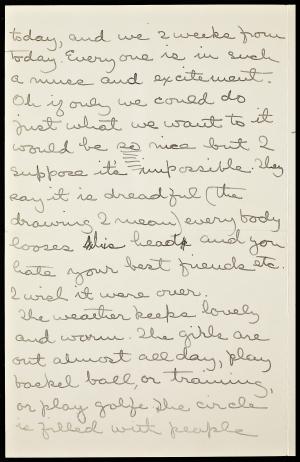 today, and we 2 weeks from
today. Every one is in such
a muss and excitement.
Oh if only we could do
just what we want to it
would be so nice but I
suppose its impossible. They
say it is dreadful (the
drawing I mean) every body
looses his head and you
hate your best friends etc.
I wish it were over.
The weather keeps lovely
and warm. The girls are
out almost all day, play
basket ball, or training,
or play golf. The circle
is filled with people